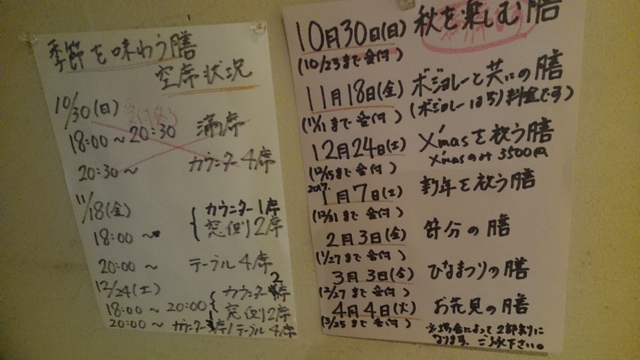 季節を味わう膳
空席状況
10/30(日)
18:00～20:30 満席
20:30～ カウンター4席
11/18(金)
カウンター1席
18:00～ 窓側2席
20:00～ テーブル4席
12/24(土)
カウンター2席
18:00～20:00 窓側2席
20:00～ カウンター 席/テーブル4席
10月30日(日) 秋を楽しむ膳
(10/23まで受付)
11月18日(金) ボジョレーと共にの膳
(11/11まで受付) (ボジョレーは別料金です)
12月24日(土) X'masを祝う膳
(12/15まで受付) X'masのみ3500円
2017.
1月7日(土) 新年を祝う膳
(12/31まで受付)
2月3日(金) 節分の膳
(1/27まで受付)
3月3日(金) ひなまつりの膳
(2/27まで受付)
4月4日(火) お花見の膳
(3/25まで受付)
※場合によって2部制に
なります。ご了承下さい。